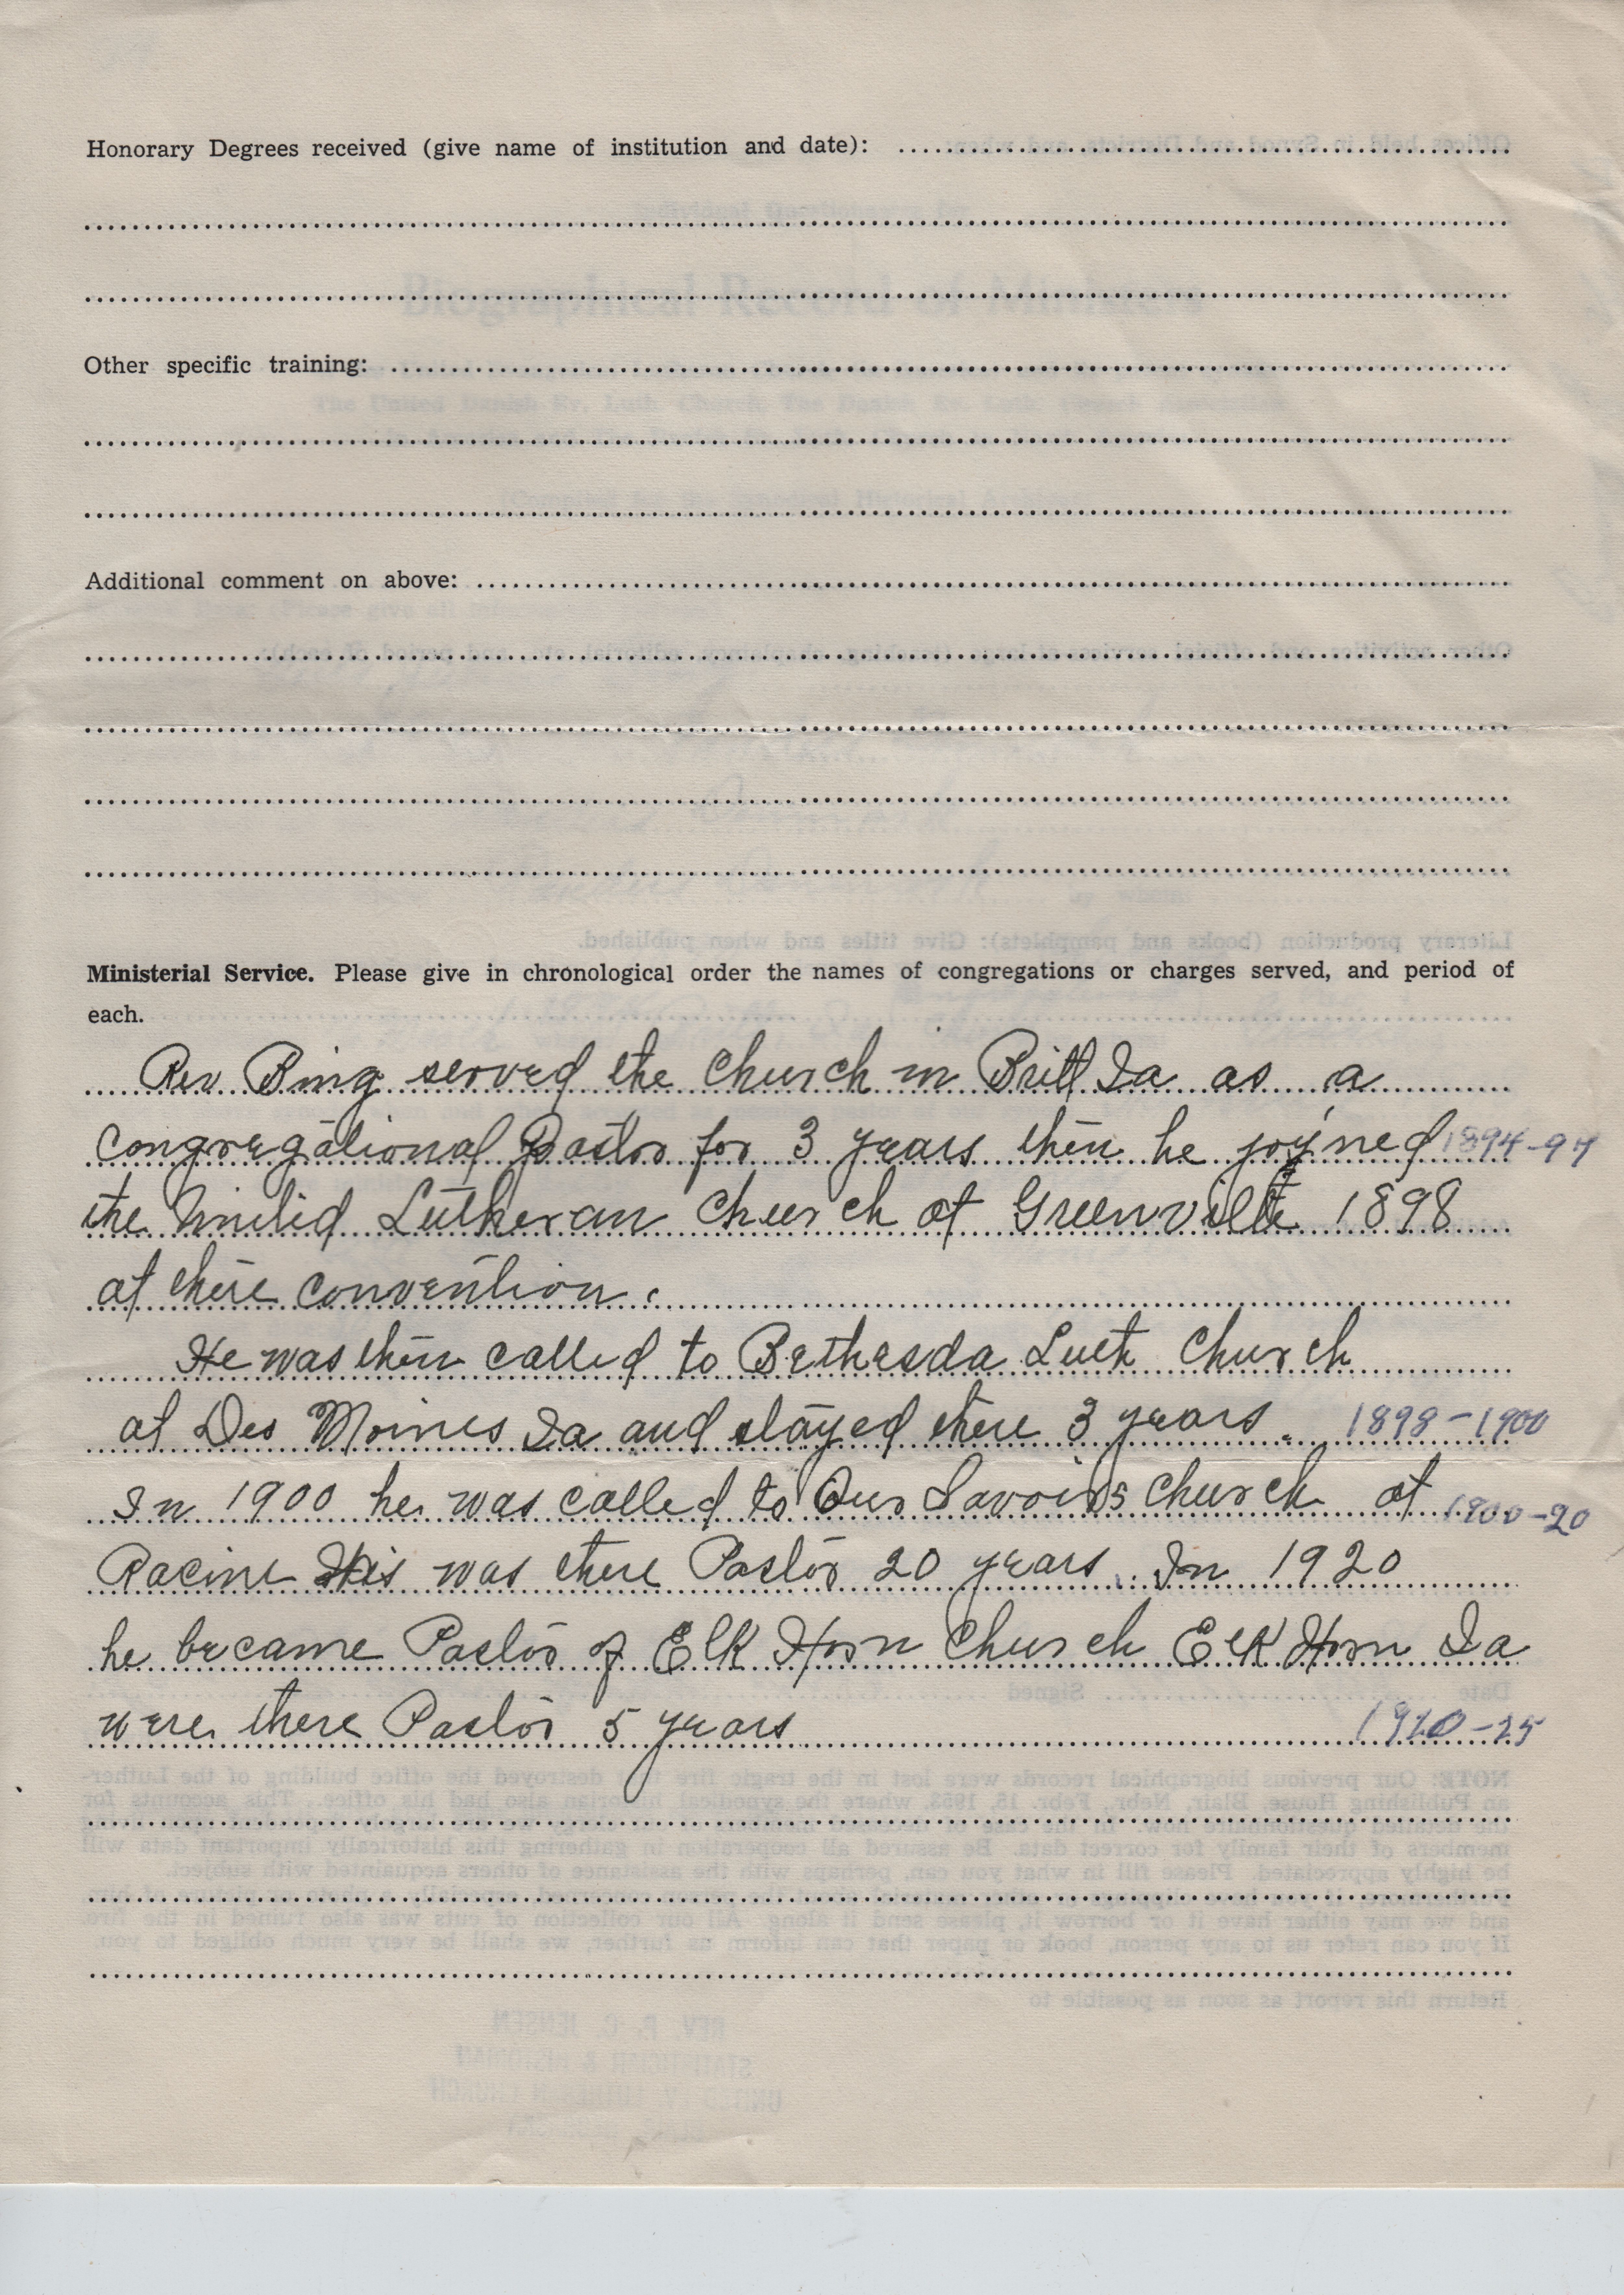 Honorary Degrees received (give name of institution and date):
Other specific training:
Additional comment on above:
Ministerial Service. Please give in chronological order the names of congregations or charges served, and period of
each.
Rev Bing served the Church in Britt Ia as a
Congregational Pastor for 3 years then he joyined 1894-97
the United Lutheran Church at Greenville 1898
at there convention.
He was then called to Bethesda Luth Church
at Des Moines Ia and stayed there 3 years. 1898-1900
In 1900 he was called to Our Savoirs Church at 1900-20
Racine His was there Pastor 20 years. In 1920
he became Pastor of Elk Horn Church Elk Horn Ia
were there Pastor 5 years 1920-25